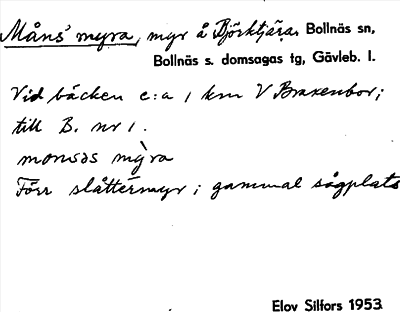 Måns' myra, myr å Björktjära, Bollnäs sn,
Bollnäs s. domsagas tg, Gävleb. l.
Vid bäcken c:a 1 km V Braxenbor;
till B. nr 1.
monsos myra
Förr slåttermyr; gammal sågplats
Elov Silfors 1953